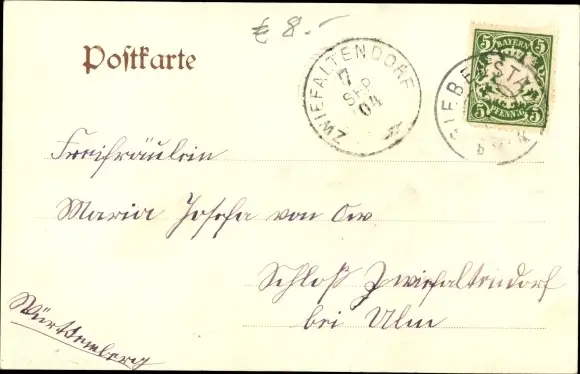 € 8.-
Postkarte
ZWIEFALTENDORF
7
SEP
04
5 BAYERN 5
5 PFENNIG 5
Freifräulein
Maria Josefa von Ow
Schloß Zwiefaltendorf
bei Ulm
Württemberg